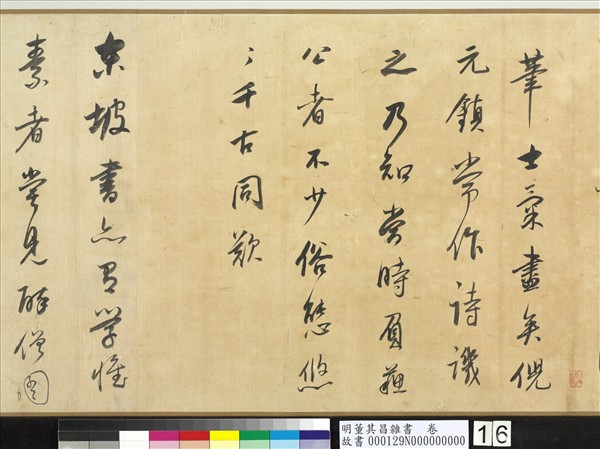 士氣盡矣倪
元鎮常作詩譏
之乃知當時
公者不少俗態悠
〻千古同歎
東坡書亦有學懷
素者嘗見醉僧圖
明董其昌雜書 卷
故書 000129N000000000
16